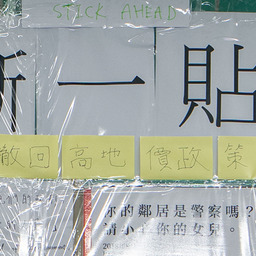 STICK AHEAD
新一貼
撤回高地價政策
你的鄰居是警察嗎?
請小心你的女兒。